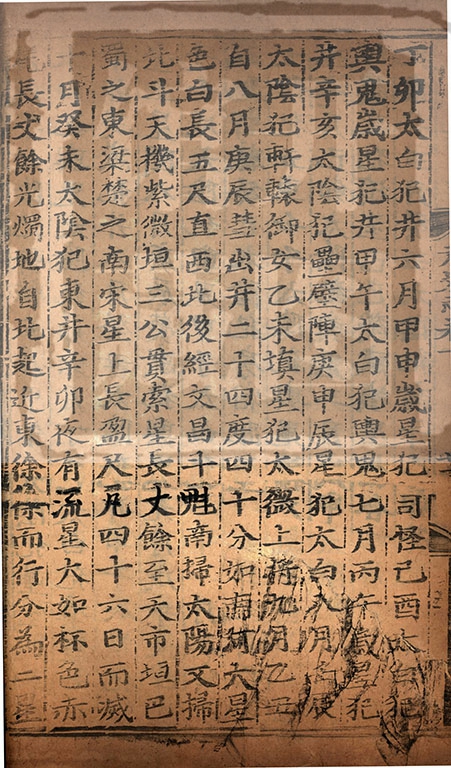 丁卯太白犯井六月甲申歲星犯司怪己酉太白犯
輿鬼歲星犯井甲午太白犯輿鬼七月丙午歲星犯
井辛亥太陰犯壘壁陣庚申辰星犯太白八月辰
太陰犯軒轅御女乙未填星犯太微上將九月乙丑
自八月庚辰彗出井二十四度四十分如南河大星
色白長五尺直西北後經文昌斗魁南掃太陽又掃
北斗天機紫微垣三公貫索星長丈餘至天市垣巴
蜀之東梁楚之南宋星上長盈尺凡四十六日而滅
十月癸未太陰犯東井辛卯夜有流星大如杯色赤
尾長丈餘光燭地自北起近東徐徐而行分為二星